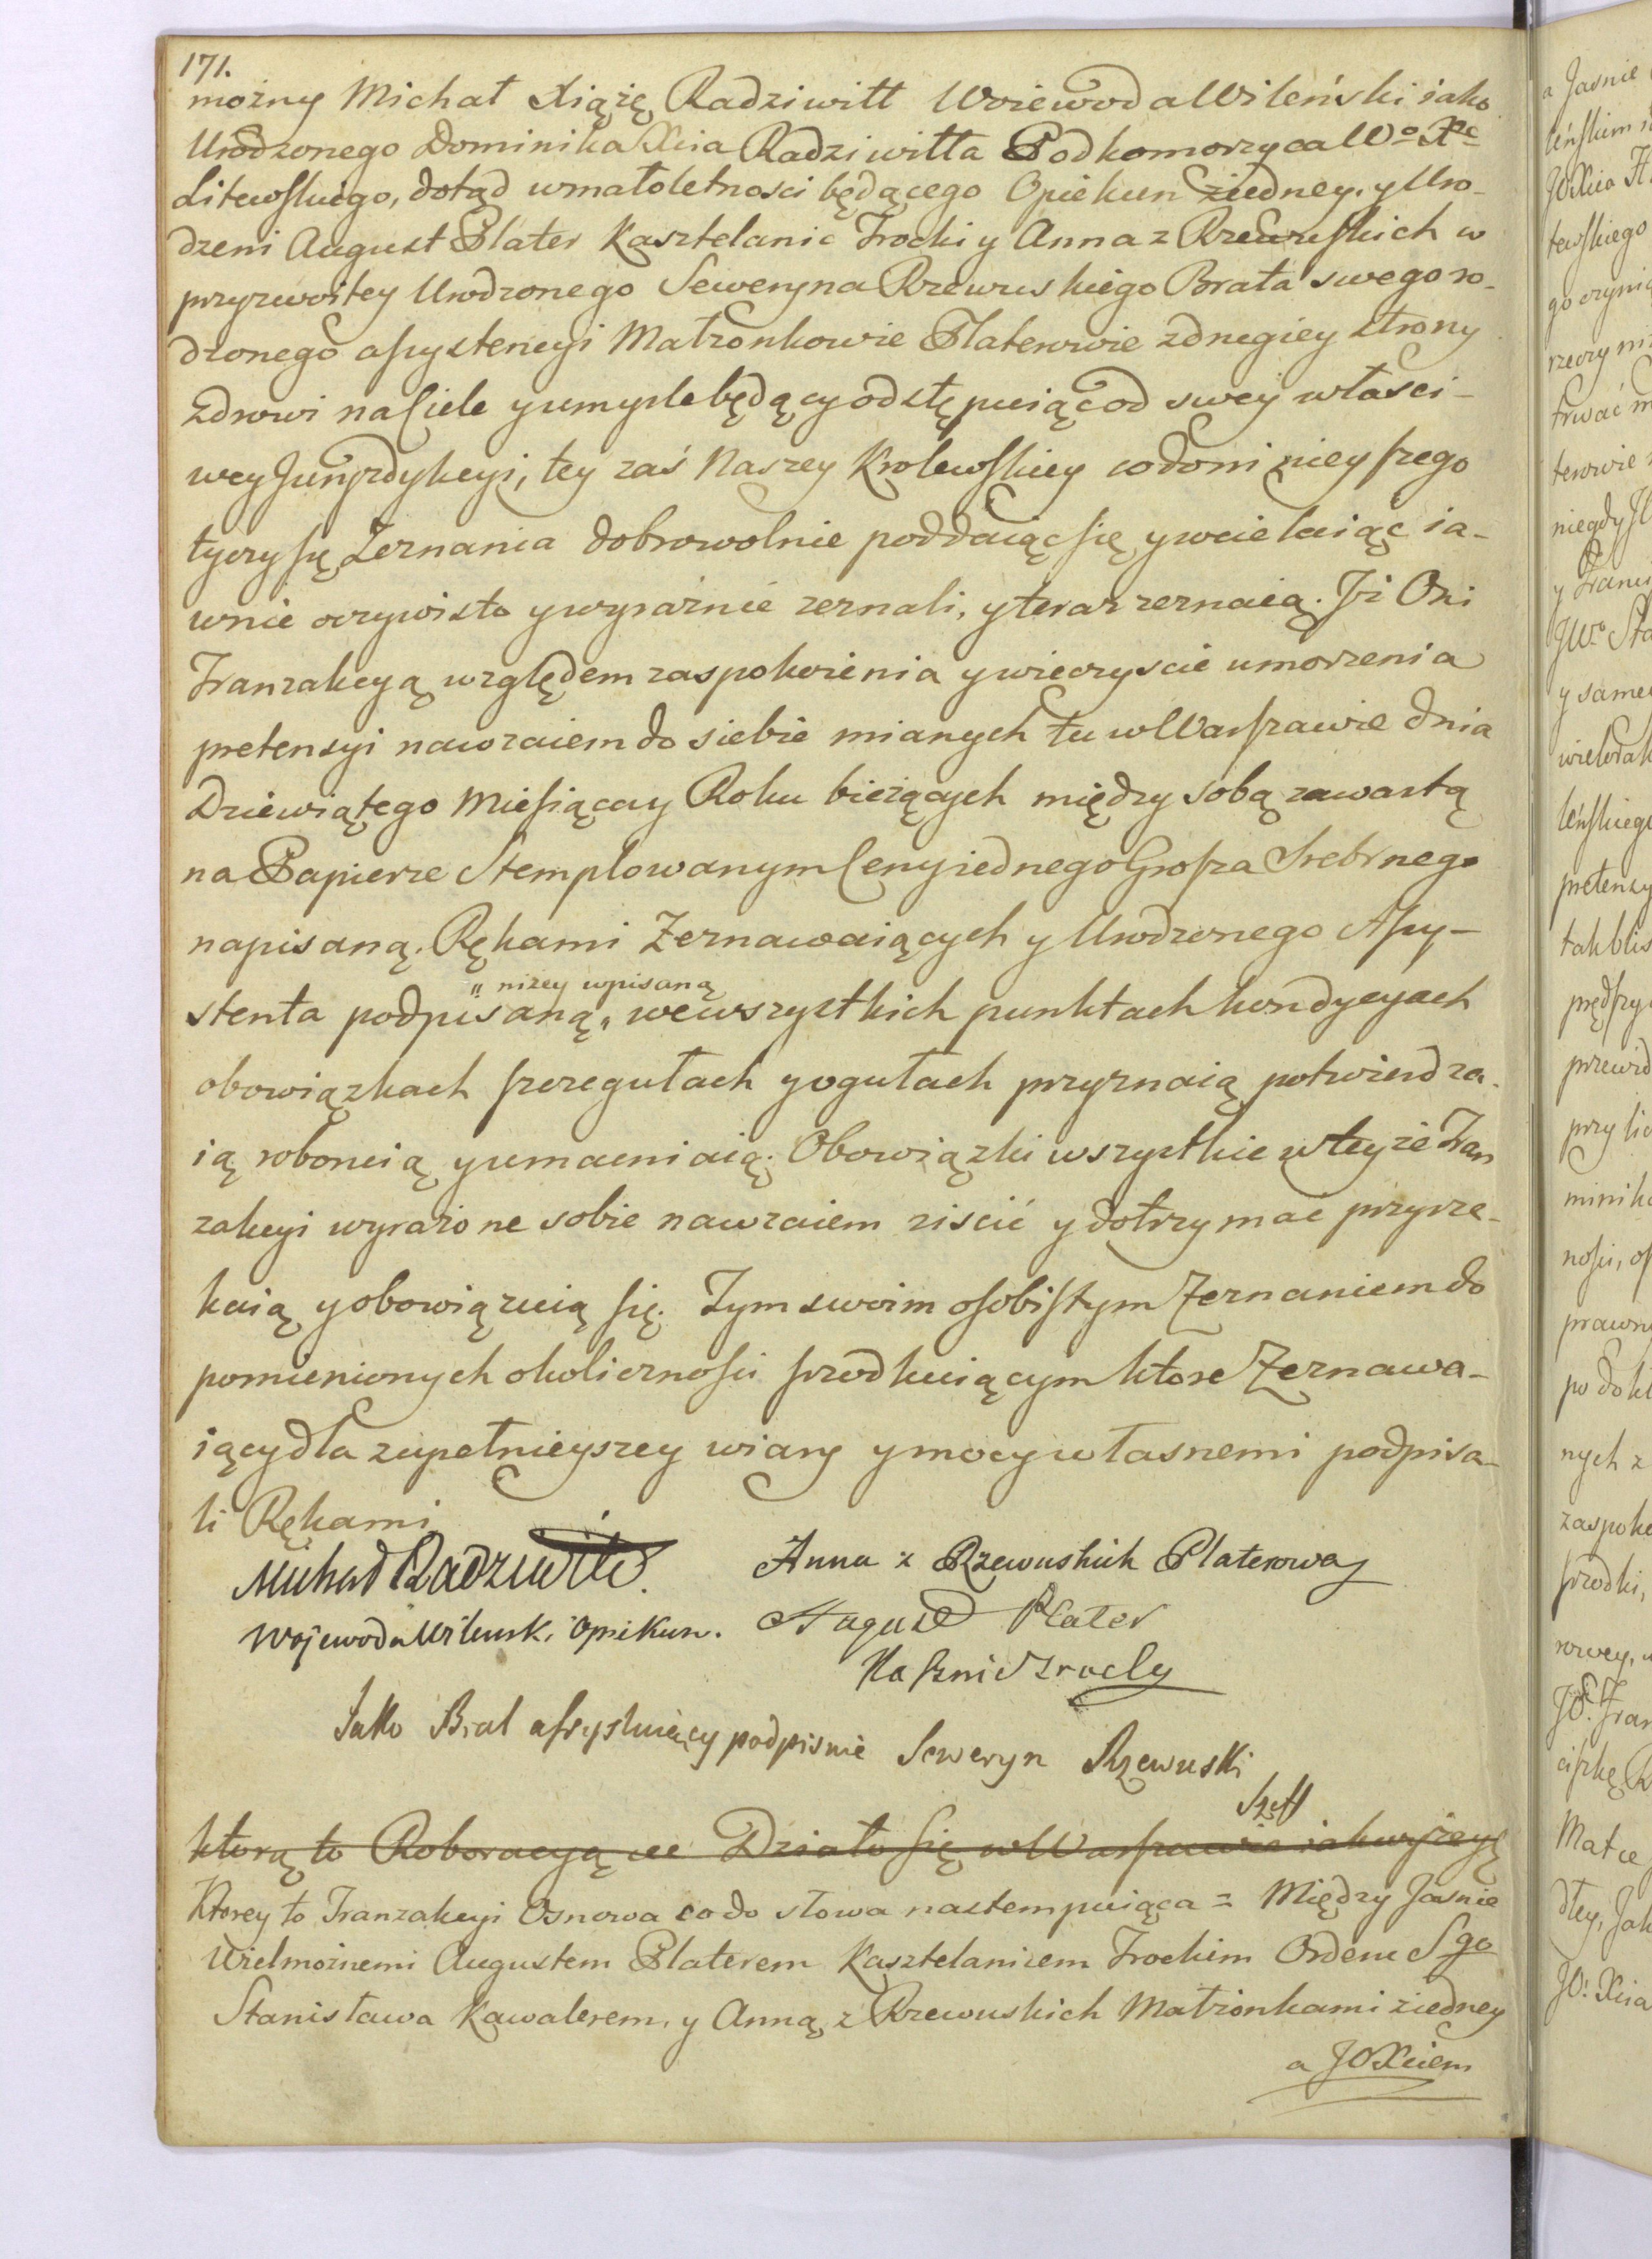 171.
możny Michał Xiążę Radziwiłł Woiewoda Wileński iako
Urodzonego Dominika Xcia Radziwiłła Podkomorzyca Wo Xc
Litewskiego, dotąd w małoletnosci będącego Opiekun ziedney, y Uro-
dzeni August Plater Kasztelanic Trocki y Anna z Rzewuskich w
przyzwoitey Urodzonego Seweryna Rzewuskiego Brata swego ro-
dzonego assystencyi Małżonkowie Platerowie z drugiey strony
zdrowi na Ciele y umysle będący odstępuiąc od swey własci-
wey Juryzdykcyi, tey zaś Naszey Krolewskiey co do ninieyszego
tyczy się Zeznania dobrowolnie poddaiąc się y wcielaiąc ia-
wnie oczywisto y wyraźnie zeznali, y teraz zeznaią. Jż Oni
Tranzakcyą względem zaspokoienia y wieczyscie umorzenia
pretensyi nawzaiem do siebie mianych tu w Warszawie dnia
Dziewiątego Miesiąca y Roku bieżących między sobą zawartą
na Papierze Stemplowanym Ceny iednego Grosza Srebrnego
napisaną. Rękami Zeznawaiących y Urodzonego Assy-
" niżey wpisaną
stenta podpisaną " we wszystkich punktach kondycyach
obowiązkach szczegułach y ogułach przyznaią potwierdza-
ią roboruią y umacniaią. Obowiązki wszystkie w teyże Tran
zakcyi wyrażone sobie nawzaiem ziscić y dotrzymać przyrze-
kaią y obowiązuią się. Tym swoim osobistym Zeznaniem do
pomienionych okolicznosci srzodkuiącym ktore Zeznawa-
iący dla zupełnieyszey wiary y mocy własnemi podpisa-
li Rękami
Michał Radziwiłł
Wojewoda Wilenski Opiekun.
Anna z Rzewuskich Platerowa
August Plater
Kasztnic Trocky
Jako Brat assystuiący podpisuie Seweryn Rzewuski
ktorą to Roboracyą etc Działo się w Warszawie iak wyżey
Ktorey to Tranzakcyi Osnowa co do słowa nastempuiąca = Między Jasnie
Wielmożnemi Augustem Platerem Kasztelanicem Trockim Orderu Sgo
Stanisława Kawalerem, y Anną z Rzewuskich Małżonkami ziedney
a JOXciem